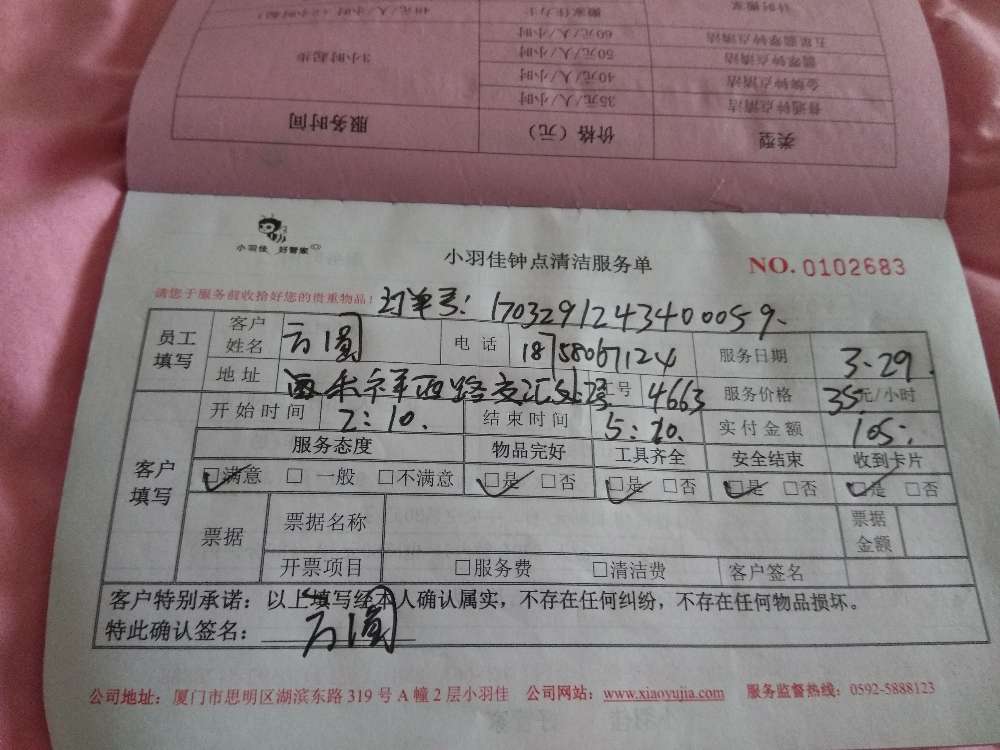 计时搬家 搬家佳力士 40元/人/小时
五星翡翠钟点清洁 60元/人/小时
翡翠钟点清洁 50元/人/小时 3小时起步
金牌钟点清洁 40元/人/小时
普通钟点清洁 35元/人/小时
类型 价格（元） 服务时间
小羽佳 好管家
小羽佳钟点清洁服务单 NO. 0102683
请您于服务前收拾好您的贵重物品！ 订单号：1703291243400059
员工填写 客户姓名 方圆 电话 18758067124 服务日期 3.29
地址 祥西路交汇处 工号 4663 服务价格 35元/小时
开始时间 2:10. 结束时间 5:20. 实付金额 105
客户填写 服务态度 物品完好 工具齐全 安全结束 收到卡片
☑满意 □ 一般 □不满意 ☑是 □否 ☑是 □否 ☑是 □否 ☑是 □否
票据 票据名称 票据金额
开票项目 □服务费 □清洁费 客户签名
客户特别承诺：以上填写经本人确认属实，不存在任何纠纷，不存在任何物品损坏。
特此确认签名： 方圆
公司地址：厦门市思明区湖滨东路 319 号 A 幢 2 层小羽佳 公司网站：www.xiaoyujia.com 服务监督热线：0592-5888123